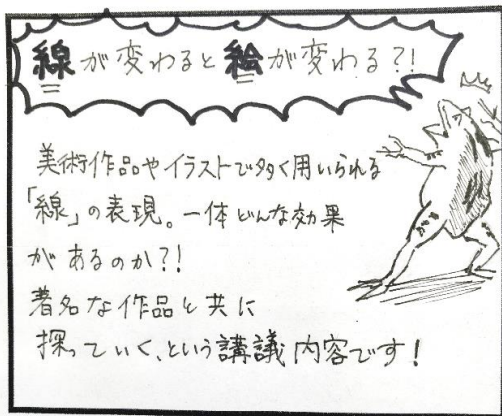 線が変わると絵が変わる?!
美術作品やイラストで多く用いられる
「線」の表現。一体どんな効果
があるのか?!
著名な作品と共に
探っていく、という講議内容です!